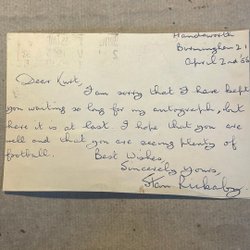 Handsworth
Birmingham 21
April 2nd '56
Dear Kurt,
I am sorry that I have kept
you waiting so long for my autograph, but
here it is at last. I hope that you are
well and that you are seeing plenty of
football. Best Wishes,
Sincerely Yours,
Stan Rickaby